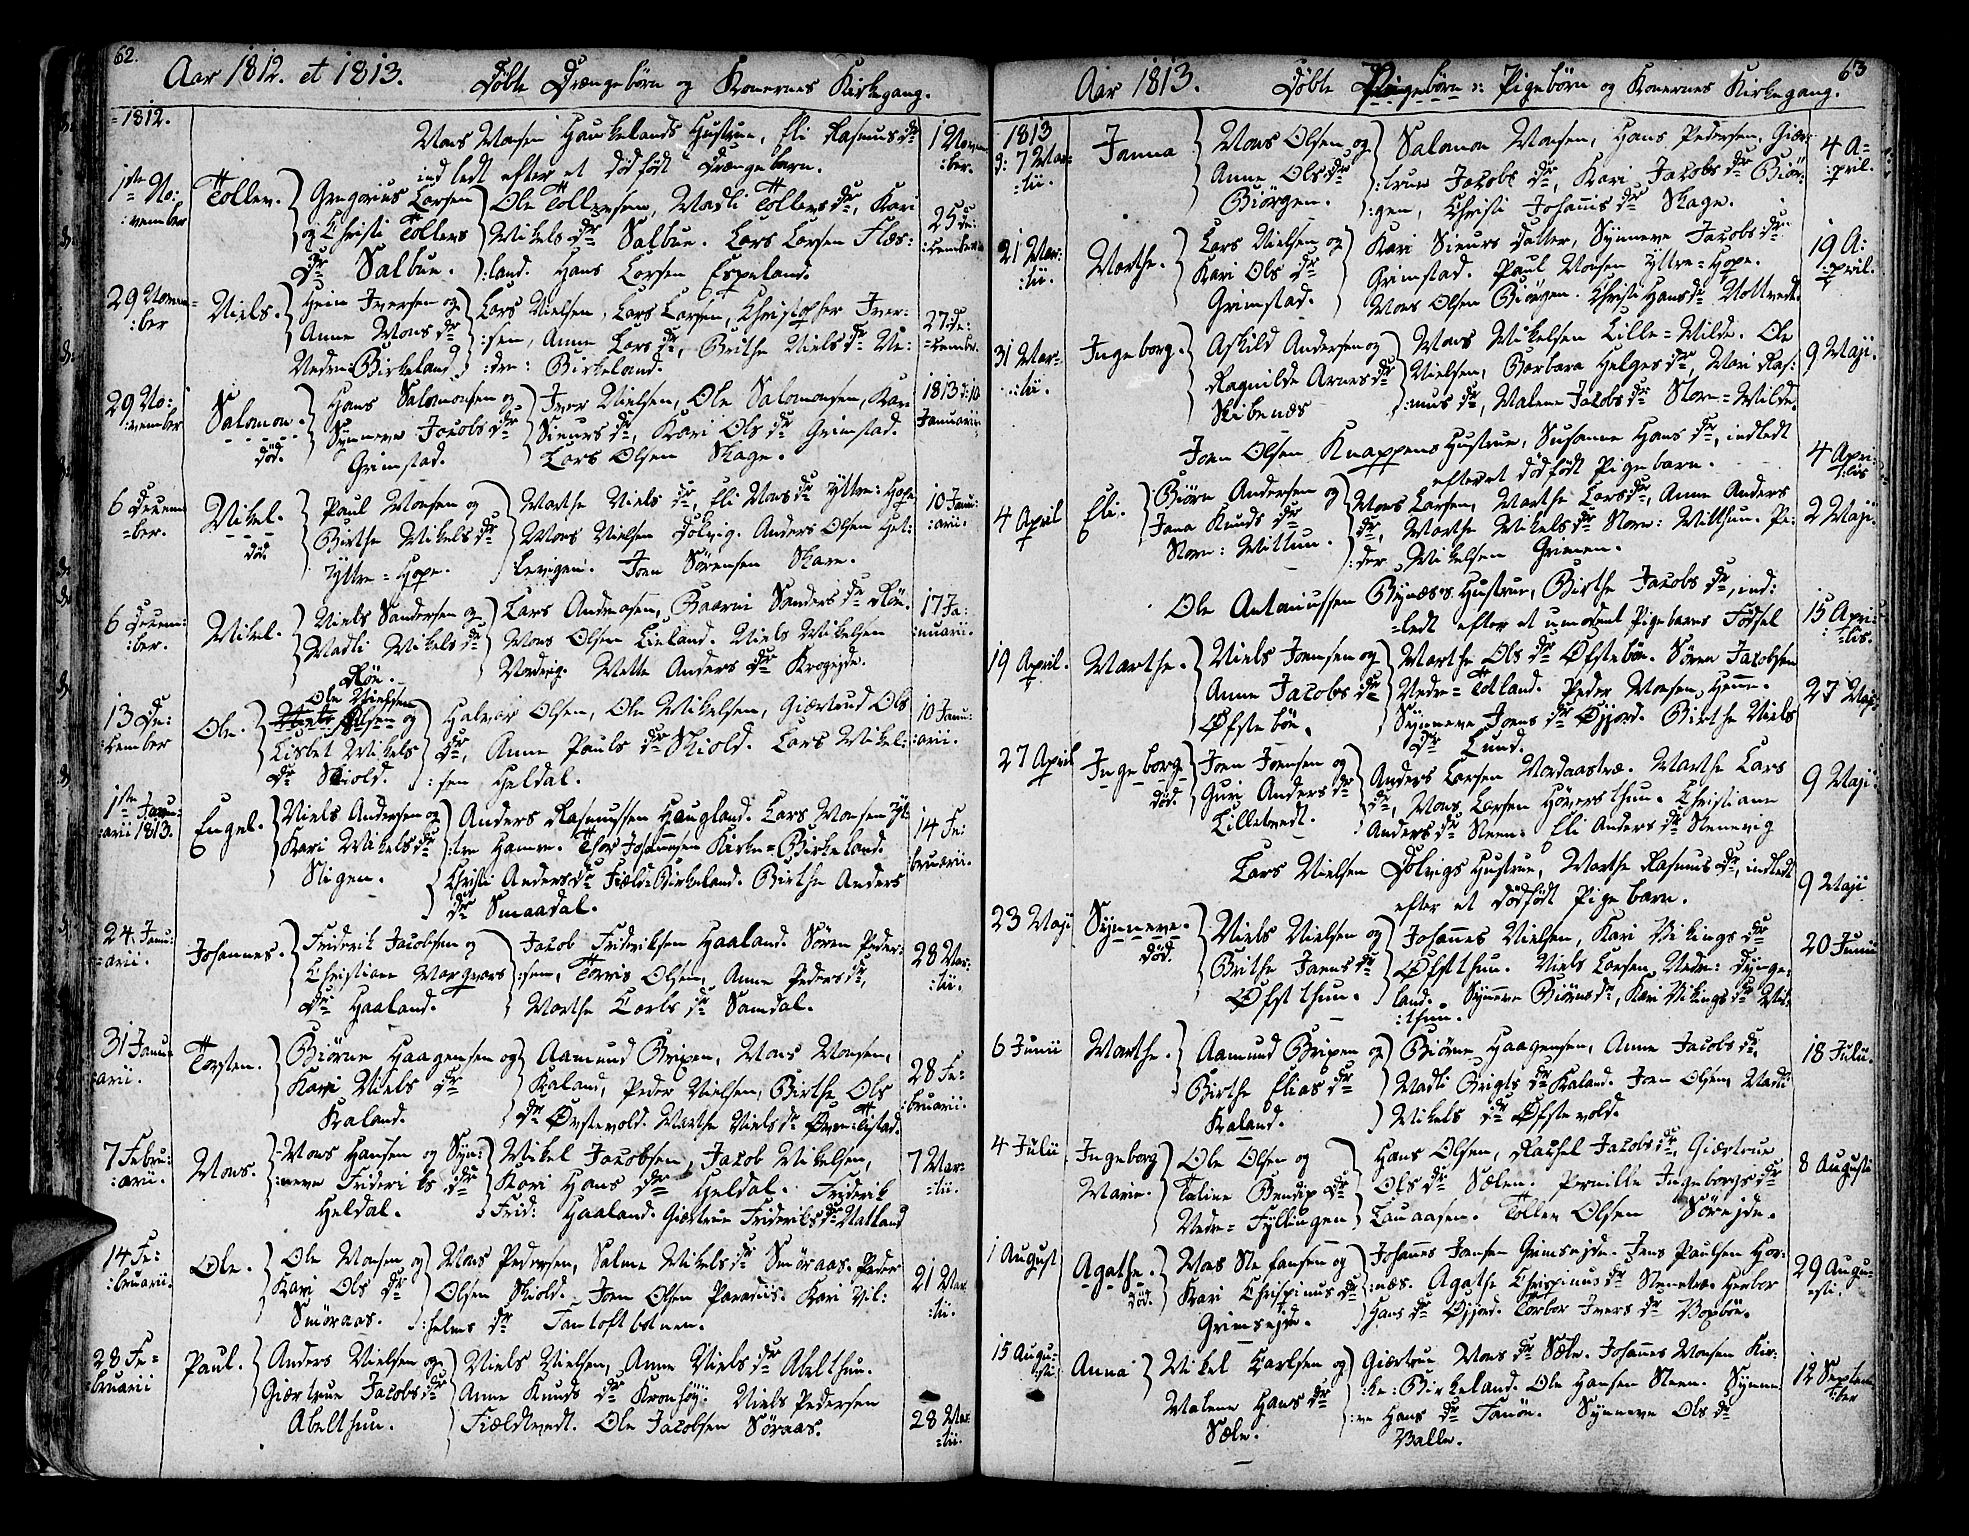 62.
Aar 1812. et 1813. Döbte Drængebörn og Konernes Kirkegang.
1812.
Mons Monsen Haukelands Hustrue, Eli Rasmus dr
indledt efter et dödfödt Drængebarn.
1 Novem:
ber.
1ste No:
:vember
Tollev.
Gregorius Larsen
og Christi Tollevs
dr Salbue.
Ole Tollevsen, Madli Tollevs dr, Kari
Mikels dr Salbue. Lars Larsen Flæs:
:land. Hans Larsen Espeland.
25 De:
:cember
29 Novem=
:ber
Niels.
Hein Iversen og
Anne Mons dr
Nedre Birkeland
Lars Nielsen, Lars Larsen, Christopher Iver:
:sen, Anne Lars dr, Brithe Niels dr Ne:
:dre: Birkeland.
27 De:
=cember.
29 No:
:vember
Salomon.
död.
Hans Salomonsen og
Synneve Jacobs dr
Grimstad.
Iver Nielsen, Ole Salomonsen, Kari
Sieurs dr, Kari Ols dr Grimstad.
Lars Olsen Skage.
1813 d: 10
Januarii
6 Decem
=ber.
Mikel.
död.
Paul Monsen og
Birthe Mikels dr
Yttre=Hope.
Marthe Niels dr, Eli Mons dr Yttre: Hope
Mons Nielsen Dolvig. Anders Olsen Het:
:levigen. Joen Sörensen Skare.
10 Janu:
:arii.
6 Decem:
:ber.
Mikel.
Niels Sandersen og
Madli Mikels dr
Röe.
Lars Andreasen, Baarni Sanders dr Röe.
Mons Olsen Lieland. Niels Mikelsen
Nordvig. Mette Anders dr Krogejde.
17 Ja:
:nuarii.
13 De:
:cember
Ole.
Ole Nielsen
Niels Olsen og
Lisbet Mikels
dr Skiold.
Halvor Olsen, Ole Mikelsen, Giærtrud Ols
dr, Anne Pauls dr Skiold. Lars Mikel:
:sen Heldal.
10 Janu:
:arii.
1ste Janu:
:arii 1813.
Engel.
Niels Andersen og
Kari Mikels dr
Stigen.
Anders Rasmussen Haugland. Lars Monsen Yt:
:tre Hamre. Thor Johannesen Kirke=Birkeland.
Christi Anders dr Field: Birkeland. Birthe Anders
dr Smaadal.
14 Fe:
bruarii.
24. Janu:
=arii.
Johannes.
Friderik Jacobsen og
Christiane Margrars
dr Haaland.
Jacob Frideriksen Haaland. Sören Peder:
:sen, Torris Olsen, Anne Peders dr,
Marthe Carls dr Samdal.
28 Mar:
:tii.
31 Janu:
arii.
Torsten.
Biörne Haagensen og
Kari Niels dr
Kaland.
Aamund Brixen, Mons Monsen,
Kaland, Peder Nielsen, Birthe Ols
dr Övstevold. Marthe Niels dr Övre: Titlestad.
28 Fe:
:bruarii.
7 Febru:
:arii.
Mons.
Mons Hansen og Syn:
:neve Frideriks dr
Heldal.
Mikel Jacobsen, Jacob Mikelsen,
Kari Hans dr Heldal. Friderik
Frid: Haaland. Giærtrue Frideriks dr Natland
7 Mar:
:tii.
14 Fe:
:bruarii.
Ole.
Ole Monsen og
Kari Ols dr
Smöraas.
Mons Pedersen, Salme Mikels dr Smöraas. Peder
Olsen Skiold. Joen Olsen Paradiis. Kari Vil:
:helms dr Tamloftbotnen.
21 Mar
tii.
28 Fe=
:bruarii
Paul.
Anders Nielsen og
Giærtrue Jacobs dr
Abelthun.
Niels Nielsen, Anne Niels dr Abelthun.
Anne Knuds dr Kronhöy. Niels Pedersen
Fieldtvedt. Ole Jacobsen Söraas.
28 Mar
=tii.
63
Aar 1813. Döbte Pigebörn o: Pigebörn og Konernes Kirkegang.
1813
d: 7 Mar=
:tii.
Janna
Mons Olsen og
Anne Ols dr
Biörgen.
Salomon Monsen, Hans Pedersen, Giær:
:true Jacobs dr, Kari Jacobs dr Biör:
:gen, Christi Johannis dr Skage.
4 A=
:pril.
21 Mar:
:tii.
Marthe.
Lars Nielsen og
Kari Ols dr
Grimstad.
Kari Sieurs datter, Synneve Jacobs dr
Grimstad. Paul Monsen Yttre=Hope.
Mons Olsen Biörgen. Christi Hans dr Nottvedt.
19 A:
:pril.
31 Mar=
:tii.
Ingeborg.
Askild Andersen og
Ragnilde Arnes dr
Skibenæs
Mons Mikelsen Lille=Milde. Ole
Nielsen, Barbara Helges dr, Mari Ras:
:mus dr, Malene Jacobs dr Store=Milde.
9 Maji.
Joen Olsen Knappens Hustrue, Susanne Hans dr, indledt
efter et dödfödt Pigebarn.
4 Apri:
:lis
4 April
Eli.
Biörn Andersen og
Jana Knuds dr
Store: Milthun.
Mons Larsen, Marthe Lars dr, Anne Anders
dr, Marthe Mikels dr Store: Milthun. Pe:
:der Mikelsen Grimen.
2 Maji.
Ole Antoniussen Bynæss Hustrue, Birthe Jacobs dr, ind:
=ledt efter et umodent Pigebarns Födsel
15 Apri:
:lis.
19 April.
Marthe.
Niels Joensen og
Anne Jacobs dr
Öfsteböe.
Marthe Ols dr Öfsteböe. Sören Jacobsen
Nedre=Totland. Peder Monsen Henne.
Synneve Joens dr Öyjord. Birthe Niels
dr Lund.
27 Maji.
27 April
Ingeborg
död.
Joen Joensen og
Guri Anders dr
Lilletvedt.
Anders Larsen Nordaastræ. Marthe Lars
dr, Mons Larsen Höversthun. Christiane
Anders dr Steen. Eli Anders dr Stenevig
9 Maji
Lars Nielsen Dolvigs Hustrue, Marthe Rasmus dr, indledt
efter et dödfödt Pigebarn.
9 Maji
23 Maji
Synneve.
död.
Niels Nielsen og
Brithe Jaens dr
Öfsthun.
Johannes Nielsen, Kari Vikings dr
Öfsthun. Niels Larsen Nedre: Dynge:
land. Synneve Biörns dr, Kari Vikings dr Mil
:thun.
20 Junii
6 Junii
Marthe.
Aamund Brixen og
Birthe Elias dr
Kaland.
Biörne Haagensen, Anne Jacobs dr,
Madli Brigts dr Kaland. Joen Olsen, Madli
Mikels dr Öfstevold.
18 Julii.
4 Julii
Ingeborg
Marie.
Ole Olsen og
Taline Bendix dr
Nedre=Fyllingen
Hans Olsen, Rachel Jacobs dr, Giærtrue
Ols dr Sælen. Pernille Ingeborgs dr
Lauaasen. Tollev Olsen Sörejde.
8 Augusti
1 August
Agathe.
död.
Mons Stefansen og
Kari Chrispinus dr
Grimsejde.
Johannes Jansen Grimsejde. Jens Paulsen Hor=
:næs. Agathe Chrispinus dr Stenekræ. Herbor
Hans dr Öyjord. Torbor Ivers dr Boxböe.
29 Augu=
=sti.
15 Augu=
sti
Anna
Mikel Carlsen og
Malene Hans dr
Sæle.
Giærtrue Mons dr Sæle. Johannes Monsen Kir:
:ke: Birkeland. Ole Hansen Steen. Synne
:ve Hans dr Fanöe. Synneve Ols dr
Balle.
12 Septem
:ber